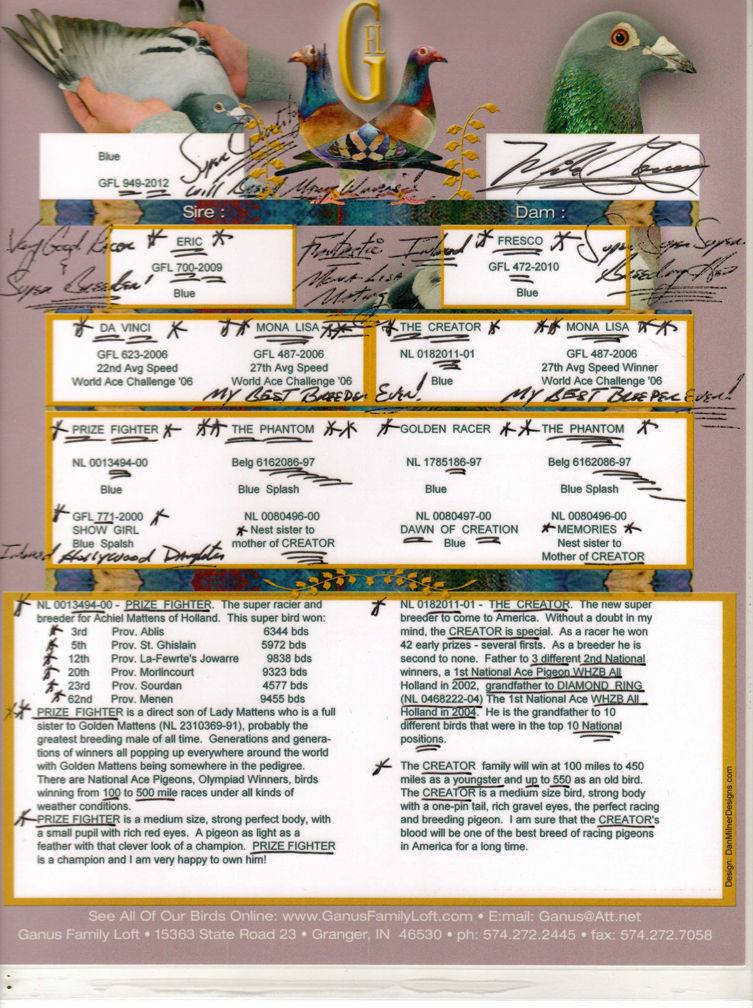 GFL
Blue
GFL 949-2012
Super
will Breed Many Winners!
Sire :
Dam :
Very Good Racer
&
Super Breeder!
ERIC
GFL 700-2009
Blue
Fantastic Inbred
Mona Lisa
Mating
FRESCO
GFL 472-2010
Blue
Super Super Super
Breeding Hen
DA VINCI
GFL 623-2006
22nd Avg Speed
World Ace Challenge '06
MONA LISA
GFL 487-2006
27th Avg Speed
World Ace Challenge '06
MY BEST BREEDER EVER!
THE CREATOR
NL 0182011-01
Blue
MONA LISA
GFL 487-2006
27th Avg Speed Winner
World Ace Challenge '06
MY BEST BREEDER EVER!
PRIZE FIGHTER
NL 0013494-00
Blue
GFL 771-2000
SHOW GIRL
Blue Spalsh
Inbred Hollywood Daughter
THE PHANTOM
Belg 6162086-97
Blue Splash
NL 0080496-00
Nest sister to
mother of CREATOR
GOLDEN RACER
NL 1785186-97
Blue
NL 0080497-00
DAWN OF CREATION
Blue
THE PHANTOM
Belg 6162086-97
Blue Splash
NL 0080496-00
MEMORIES
Nest sister to
Mother of CREATOR
NL 0013494-00 - PRIZE FIGHTER. The super racier and
breeder for Achiel Mattens of Holland. This super bird won:
3rd Prov. Ablis 6344 bds
5th Prov. St. Ghislain 5972 bds
12th Prov. La-Fewrte's Jowarre 9838 bds
20th Prov. Morlincourt 9323 bds
23rd Prov. Sourdan 4577 bds
62nd Prov. Menen 9455 bds
PRIZE FIGHTER is a direct son of Lady Mattens who is a full
sister to Golden Mattens (NL 2310369-91), probably the
greatest breeding male of all time. Generations and genera-
tions of winners all popping up everywhere around the world
with Golden Mattens being somewhere in the pedigree.
There are National Ace Pigeons, Olympiad Winners, birds
winning from 100 to 500 mile races under all kinds of
weather conditions.
PRIZE FIGHTER is a medium size, strong perfect body, with
a small pupil with rich red eyes. A pigeon as light as a
feather with that clever look of a champion. PRIZE FIGHTER
is a champion and I am very happy to own him!
NL 0182011-01 - THE CREATOR. The new super
breeder to come to America. Without a doubt in my
mind, the CREATOR is special. As a racer he won
42 early prizes - several firsts. As a breeder he is
second to none. Father to 3 different 2nd National
winners, a 1st National Ace Pigeon WHZB All
Holland in 2002, grandfather to DIAMOND RING
(NL 0468222-04) The 1st National Ace WHZB All
Holland in 2004. He is the grandfather to 10
different birds that were in the top 10 National
positions.
The CREATOR family will win at 100 miles to 450
miles as a youngster and up to 550 as an old bird.
The CREATOR is a medium size bird, strong body
with a one-pin tail, rich gravel eyes, the perfect racing
and breeding pigeon. I am sure that the CREATOR's
blood will be one of the best breed of racing pigeons
in America for a long time.
Design: DanMilnerDesigns.com
See All Of Our Birds Online: www.GanusFamilyLoft.com • E:mail: Ganus@Att.net
Ganus Family Loft • 15363 State Road 23 • Granger, IN 46530 • ph: 574.272.2445 • fax: 574.272.7058